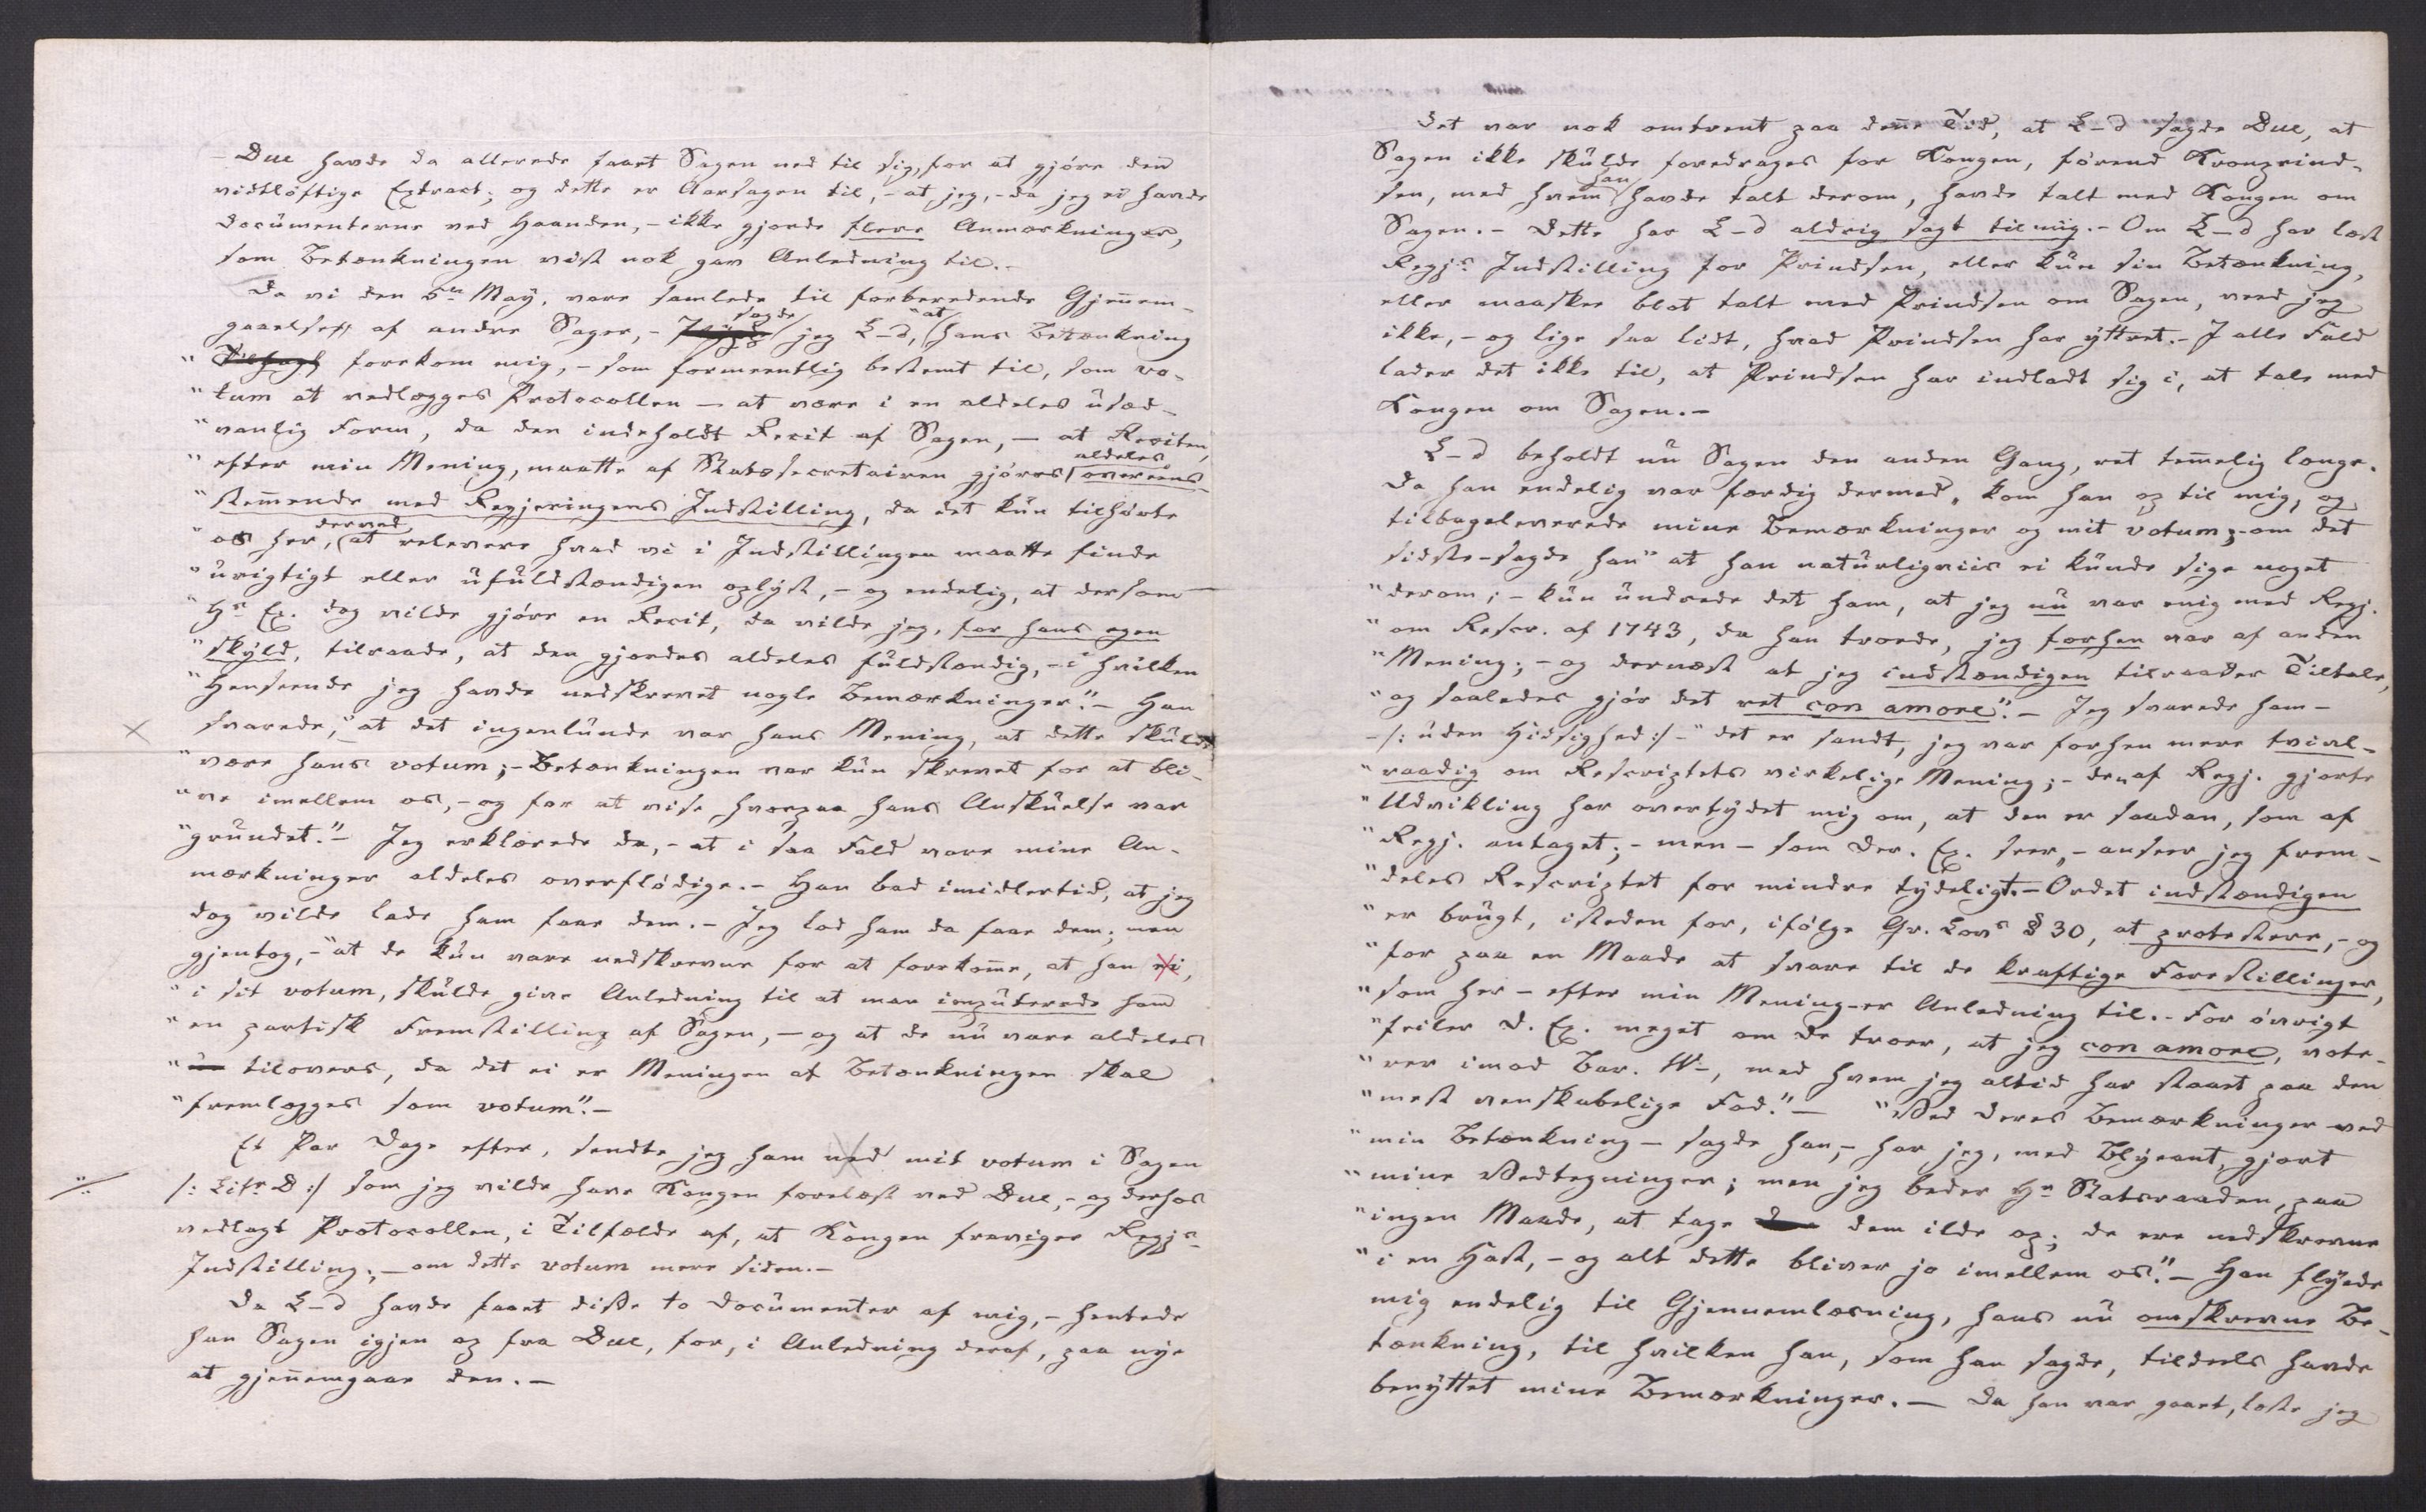 - Due havde da allerede faaet Sagen ned til sig, for at gjöre den
vidtlöftige Extract; og dette er Aarsagen til, - at jeg, - da jeg ei havde
Documenterne ved Haanden, - ikke gjorde flere Anmærkninger,
som Betænkningen vist nok gav Anledning til. -
Da vi den 5te May, vare samlede til forberedende Gjennem-
gaaelse af andre Sager, - sagde jeg L-d, "at hans Betænkning
" forekom mig, - som formeentlig bestemt til, som vo-
"tum at vedlægges Protocollen - at være i en aldeles usæd-
"vanlig Form, da den indeholdt Recit af Sagen, - at Reciten,
"efter min Mening, maatte af Statssecretairen gjöres aldeles overeens-
"stemmende med Regjeringens Indstilling, da det kun tilhörte
"os her, derved at relevere hvad vi i Indstillingen maatte finde
"urigtigt eller ufuldstændigen oplyst, - og endelig, at dersom
"Hr Ex. dog vilde gjöre en Recit, da vilde jeg, for hans egen
"skyld, tilraade, at den gjordes aldeles fuldstændig, - i hvilken
"Henseende jeg havde nedskrevet nogle Bemærkninger". - Han
svarede, "at det ingenlunde var hans Mening, at dette skulde
"være hans votum; - Betænkningen var kun skrevet for at bli-
"ve imellem os, - og for at vise hvorpaa hans Anskuelse var
"grundet." - Jeg erklærede da, - at i saa Fald vare mine An-
mærkninger aldeles overflödige. - Han bad imidlertid, at jeg
dog vilde lade ham faae dem. - Jeg lod ham da faae dem; men
gjentog, - "at de kun vare nedskrevne for at forekomme, at han ei,
"i sit votum, skulde give Anledning til at man imputerede ham
"en partisk Fremstilling af Sagen, - og at de nu vare aldeles
" tilovers, da det ei er Meningen at Betænkningen skal
"fremlægges som votum". -
Et Par Dage efter, sendte jeg ham ned mit votum i Sagen
/: Litr D :/ som jeg vilde have Kongen forelæst ved Due, - og derhos
vedlagt Protocollen, i Tilfælde af, at Kongen fraviger Regjs
Indstilling; - om dette votum mere siden. -
Da L-d havde faaet disse to Documenter af mig, - hentede
han Sagen igjen op fra Due, for, i Anledning deraf, paa nye
at gjennemgaae den. -
Det var nok omtrent paa denne Tid, at L-d sagde Due, at
Sagen ikke skulde foredrages for Kongen, förend Kronprind-
sen, med hvem han havde talt derom, havde talt med Kongen om
Sagen. - Dette har L-d aldrig sagt til mig. - Om L-d har læst
Regjs Indstilling for Prindsen, eller kun sin Betænkning,
eller maaskee blot talt med Prindsen om Sagen, veed jeg
ikke, - og lige saa lidt, hvad Prindsen har yttret. - I alle Fald
lader det ikke til, at Prindsen har indladt sig i, at tale med
Kongen om Sagen. -
L-d beholdt nu Sagen den anden Gang, ret temmelig længe.
Da han endelig var færdig dermed, kom han op til mig, og
tilbageleverede mine Bemærkninger og mit votum; - om det
sidste - sagde han "at han naturligviis ei kunde sige noget
"derom; - kun undrede det ham, at jeg nu var enig med Regj.
"om Rescr. af 1743, da han troede, jeg forhen var af anden
"Mening; - og dernæst at jeg indstændigen tilraader Tiltale,
"og saaledes gjör det ret con amore". - Jeg svarede ham -
- /: uden Hidsighed :/ - "det er sandt, jeg var forhen mere tvivl-
"raadig om Rescriptets virkelige Mening; - den af Regj. gjorte
"Udvikling har overtydet mig om, at den er saadan, som af
"Regj. antaget; - men - som Der. Ex. seer, - anseer jeg frem-
"deles Rescriptet for mindre tydeligt. - Ordet indstændigen
"er brugt, isteden for, ifölge Gr. Lovs § 30, at protestere, - og
"for paa en Maade at svare til de kraftige Forestillinger,
"som her - efter min Mening - er Anledning til. - For övrigt
"feiler D. Ex. meget om De troer, at jeg con amore, vote-
"rer imod Bar. W-, med hvem jeg altid har staaet paa den
"mest venskabelige Fod." - "Ved Deres Bemærkninger ved
"min Betænkning - sagde han, - har jeg, med Blyeant, gjort
"mine Vedtegninger; men jeg beder Hr Statsraaden, paa
"ingen Maade, at tage dem ilde op; de ere nedskrevne
"i en Hast, - og alt dette bliver jo imellem os". - Han flyede
mig endelig til Gjennemlæsning, hans nu omskrevne Be-
tænkning, til hvilken han, som han sagde, tildeels havde
benyttet mine Bemærkninger. - Da han var gaaet, læste jeg